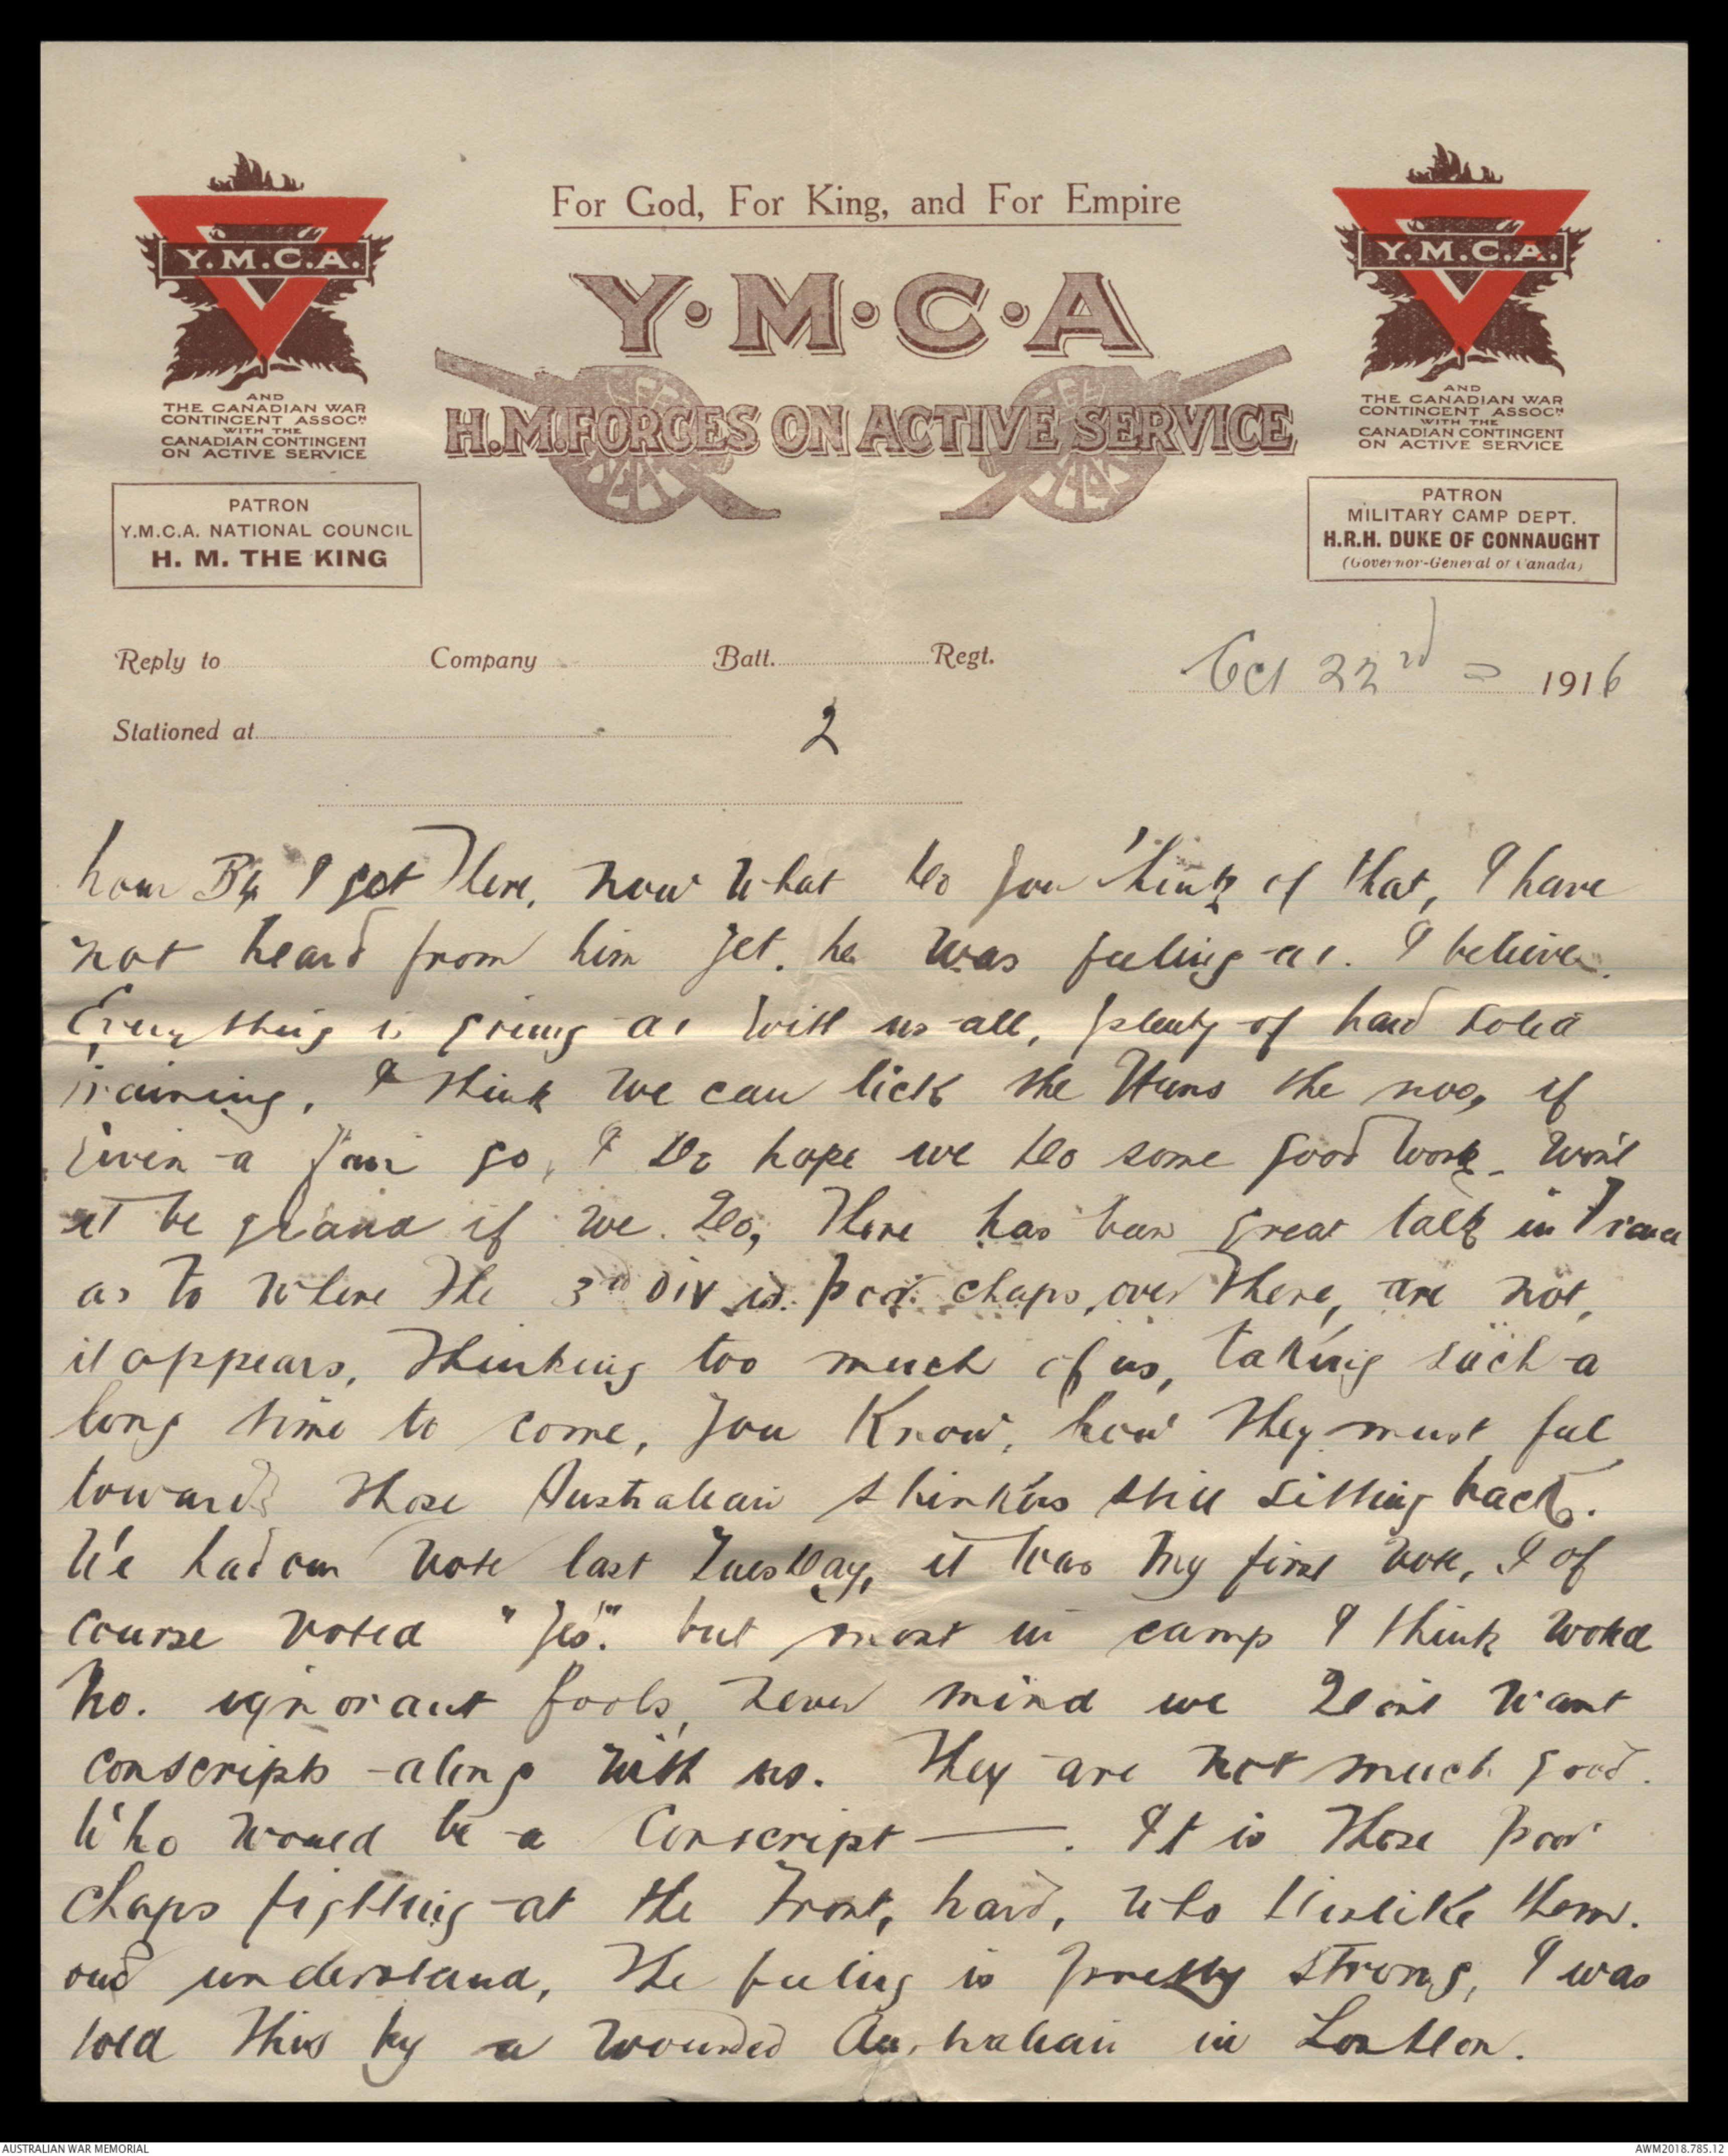 For God, For King, and For Empire
Y.M.C.A.
Y·M·C·A
Y.M.C.A.
H.M. FORCES ON ACTIVE SERVICE
AND
THE CANADIAN WAR
CONTINGENT ASSOCN
WITH THE
CANADIAN CONTINGENT
ON ACTIVE SERVICE
AND
THE CANADIAN WAR
CONTINGENT ASSOCN
WITH THE
CANADIAN CONTINGENT
ON ACTIVE SERVICE
PATRON
Y.M.C.A. NATIONAL COUNCIL
H. M. THE KING
PATRON
MILITARY CAMP DEPT.
H.R.H. DUKE OF CONNAUGHT
(Governor-General of Canada)
Reply to Company Batt. Regt. Oct 22rd 1916
Stationed at
2
hour B4 I got there, now what do you think of that, I have
not heard from him yet. he was feeling a1. I believe.
Every thing is going a1 with us all, plenty of hard solid
training, I think we can lick the Huns the noo, if
given a fair go, I do hope we do some good work. Won't
it be grand if we do, There has been great talk in France
as to where the 3rd DIV is. poor chaps over there, are not,
it appears, thinking too much of us, taking such a
long time to come, you know, how they must feel
towards those Australian shinkers still sitting back.
We had our vote last Tuesday, it was my first vote, I of
course voted "yes". but most in camp I think voted
No. ignorant fools, never mind we don't want
conscripts along with us. They are not much good.
Who would be a Conscript —. It is those poor
chaps fighting at the Front, hard, who dislike them.
and understand, the feeling is pretty strong, I was
told this by a wounded Australian in London.
AUSTRALIAN WAR MEMORIAL
AWM2018.785.12